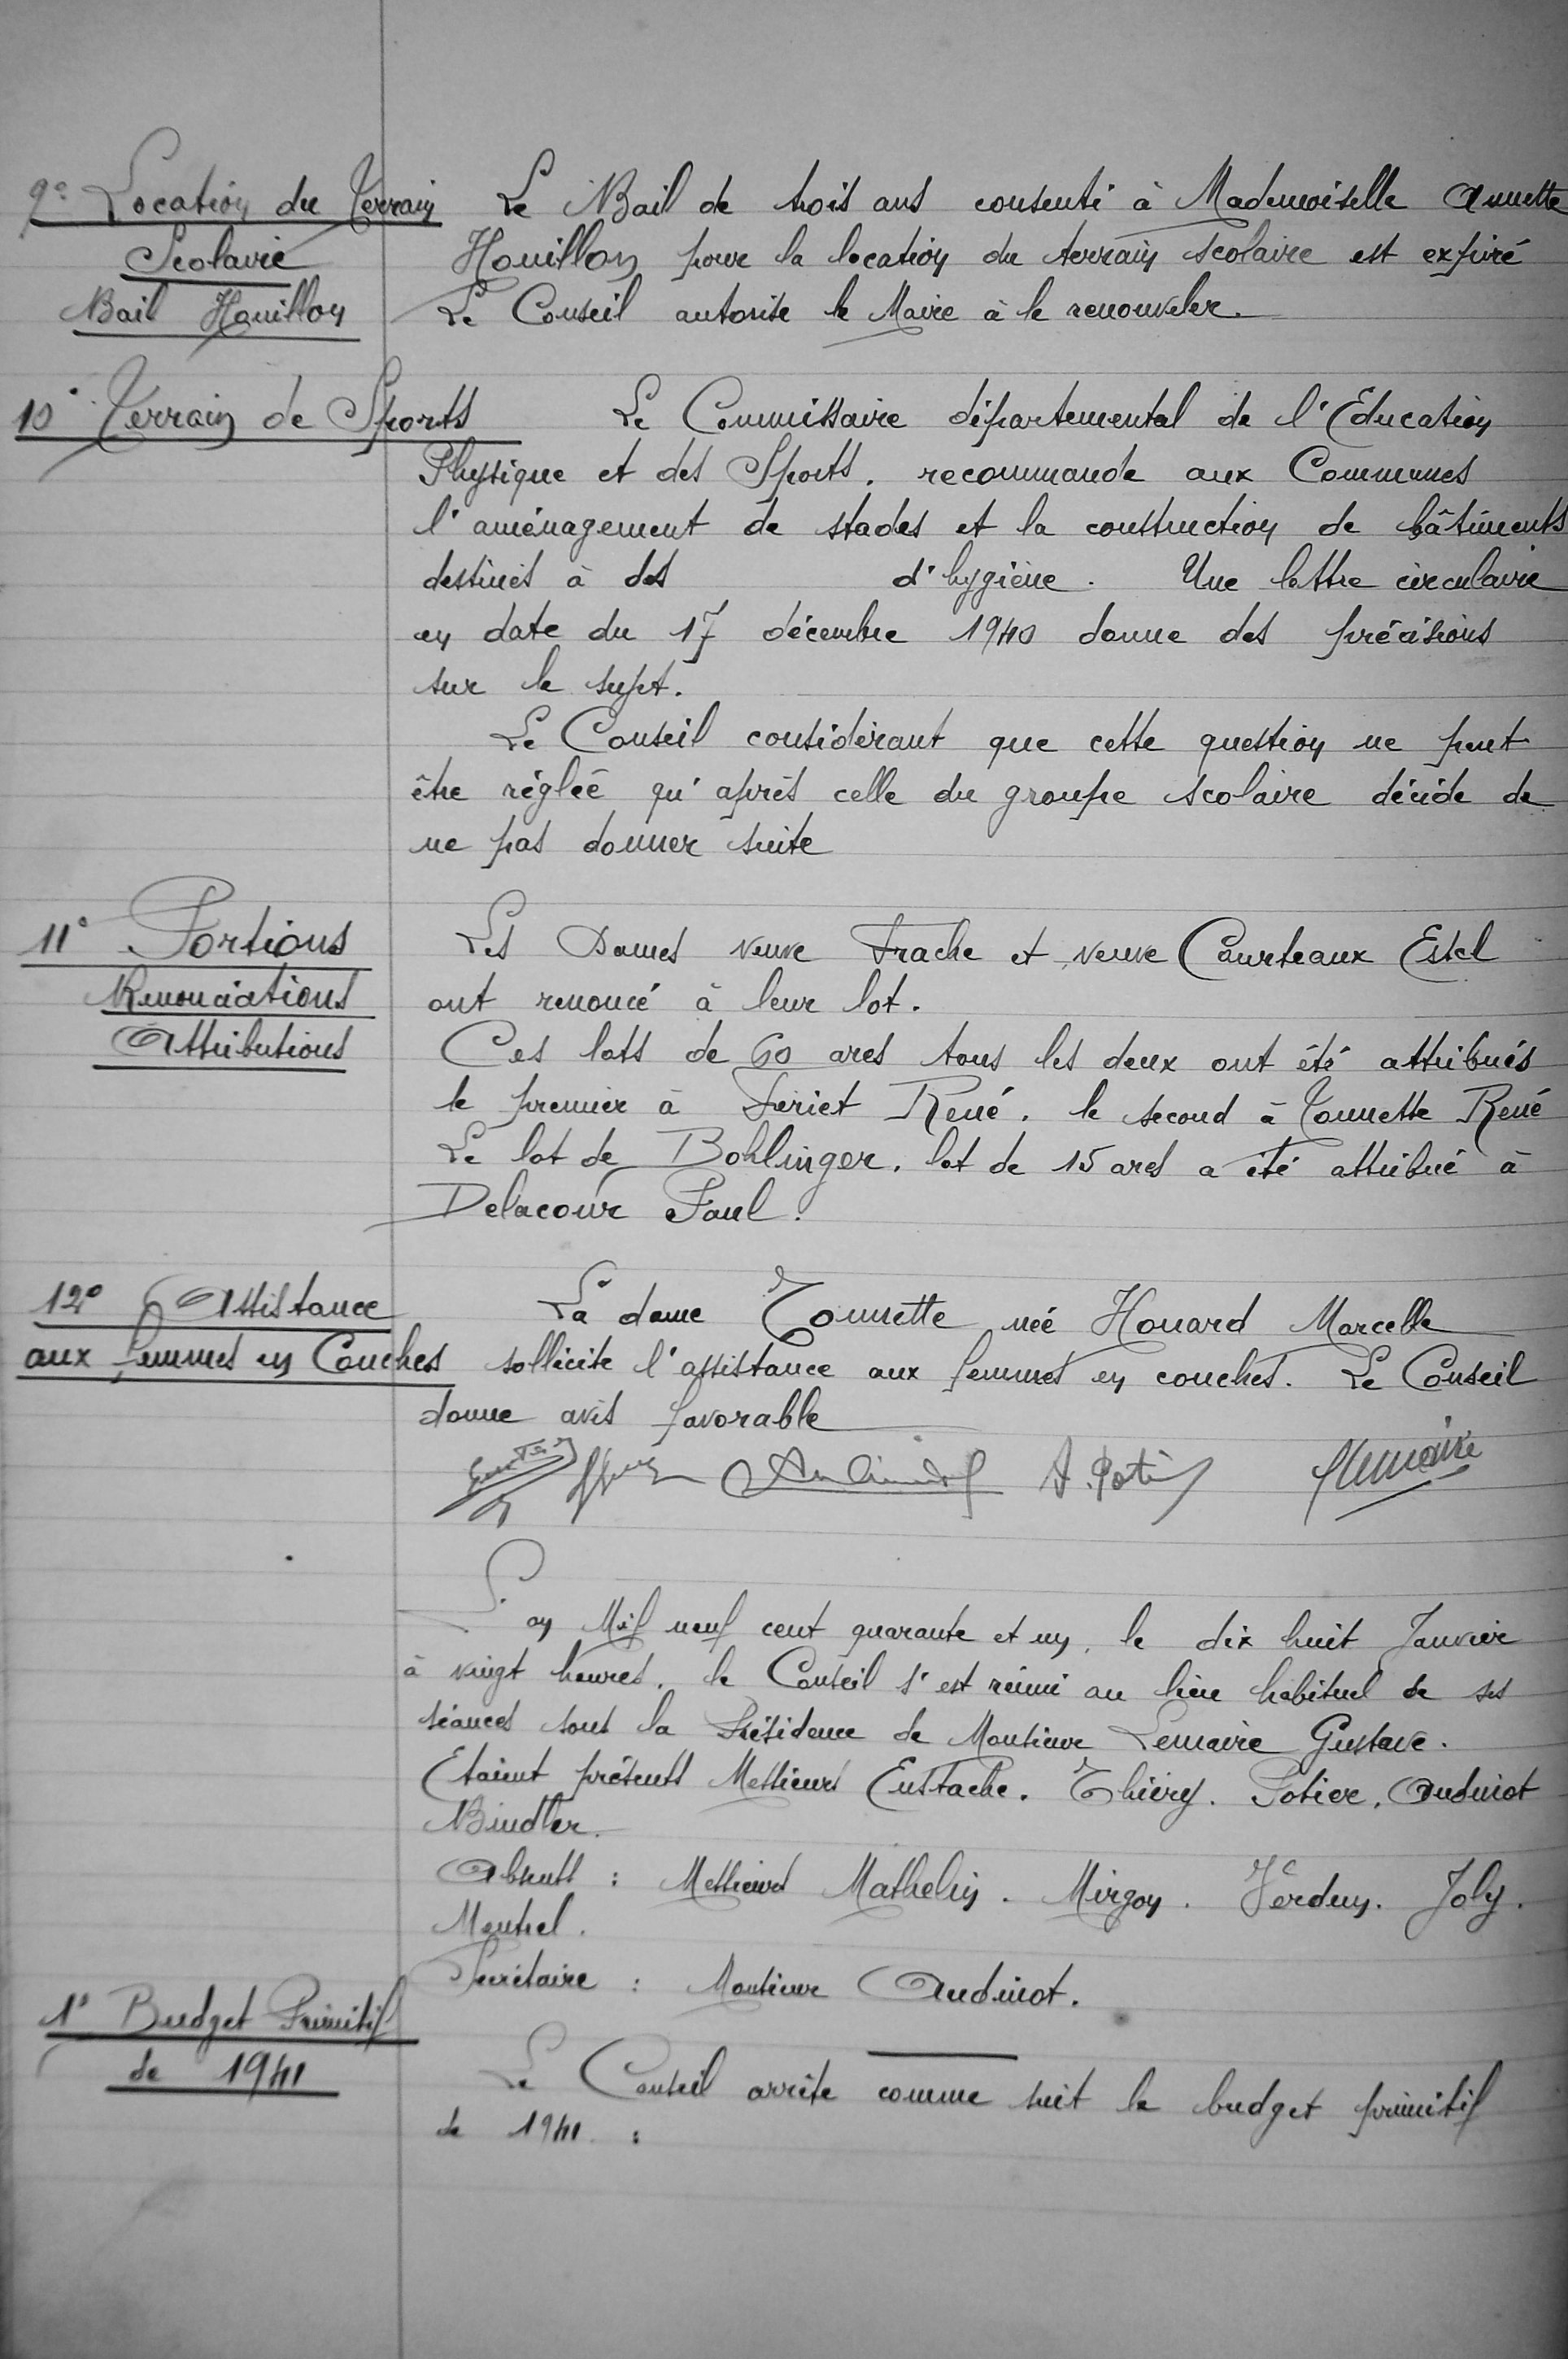 9° Location du Terrain
Scolaire
Bail Houillon
Le Bail de trois ans consenti à Mademoiselle Annette
Houillon pour la location du terrain scolaire est expiré
Le Conseil autorise le Maire à le renouveler.
10° Terrain de Sports
Le Commissaire départemental de l'Education
Physique et des Sports. recommande aux Communes
l'aménagement de stades et la construction de bâtiments
destinés à des d'hygiène. Une lettre circulaire
en date du 17 décembre 1940 donne des précisions
sur le sujet.
Le Conseil considérant que cette question ne peut
être réglée qu'après celle du groupe scolaire décide de
ne pas donner suite
11° Portions
Renonciations
Attributions
Les Dames veuve Frache et veuve Courteaux Estel
ont renoncé à leur lot.
Ces lots de 60 ares tous les deux ont été attribués
le premier à Feriet René. le second à Tonnette René
Le lot de Bohlinger. lot de 15 ares a été attribué à
Delacour Paul.
12° Assistance
aux femmes en Couches
La dame Tonnette née Houard Marcelle
sollicite l'assistance aux femmes en couches. Le Conseil
donne avis favorable
A. Poti
Lemaire
L'an Mil neuf cent quarante et un, le dix huit Janvier
à vingt heures, le Conseil s'est réuni au lieu habituel de ses
séances sous la Présidence de Monsieur Lemaire Gustave.
Etaient présents Messieurs Eustache. Thiéry. Potier. Audinot
Bindler.
Absents : Messieurs Mathelin. Mirgon. Verdun. Joly.
Mentrel.
Secrétaire : Monsieur Audinot.
1° Budget Primitif
de 1941
Le Conseil arrête comme suit le budget primitif
de 1941 :